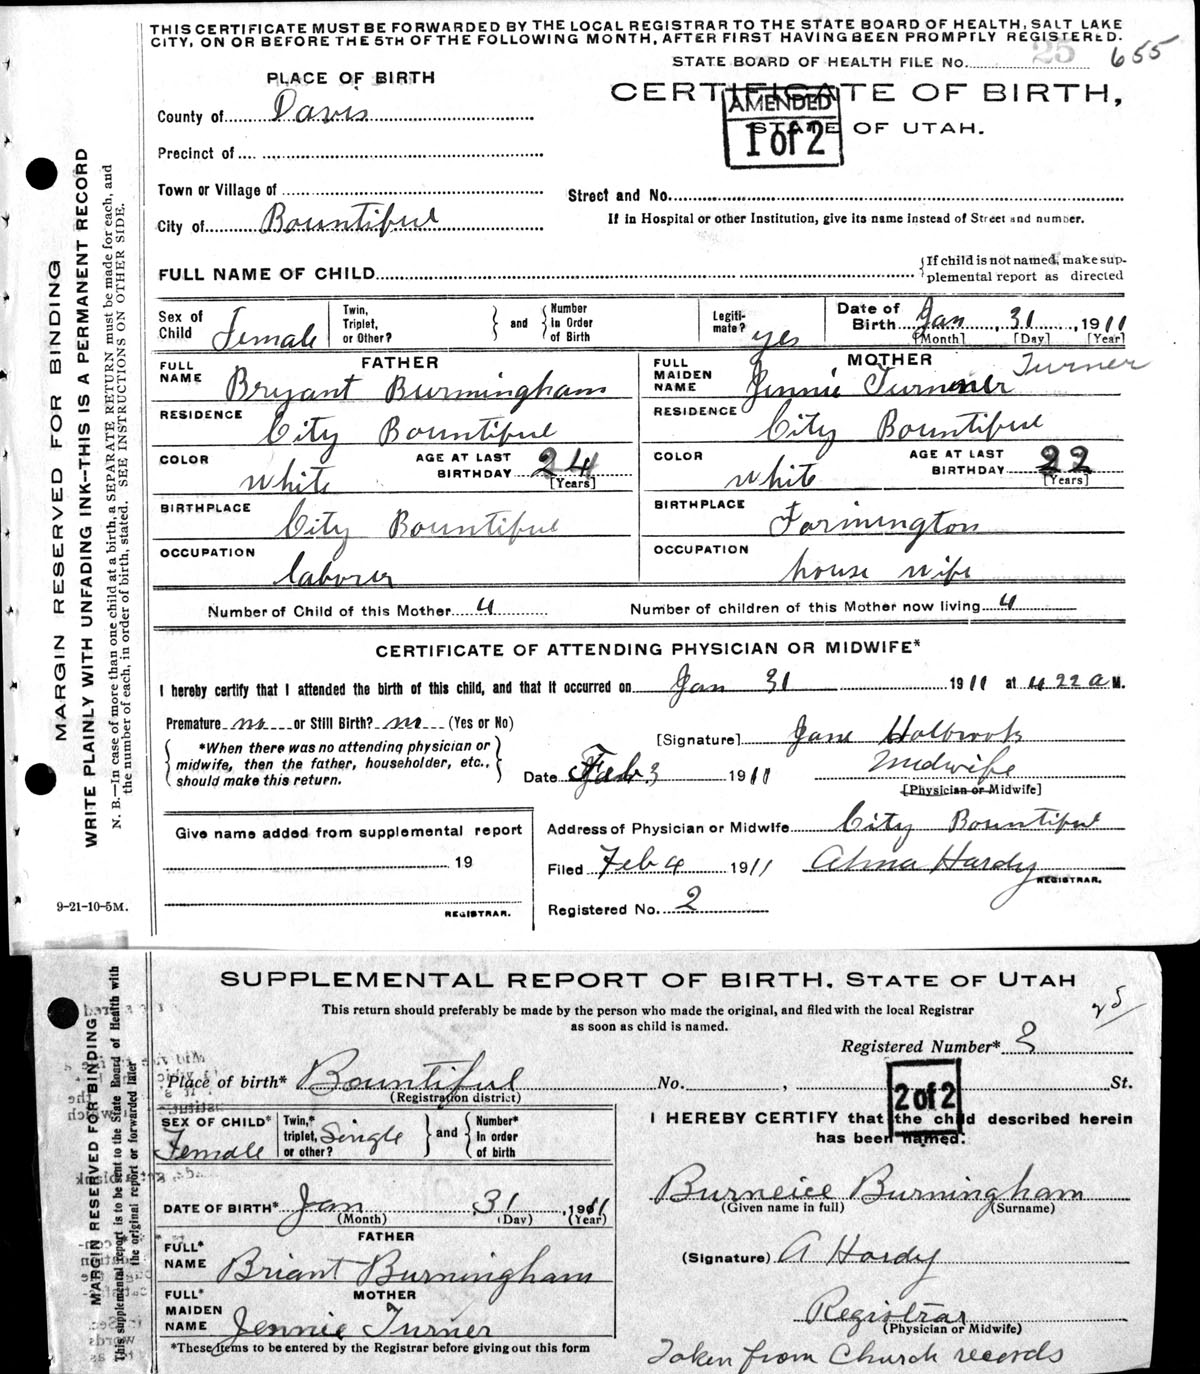 THIS CERTIFICATE MUST BE FORWARDED BY THE LOCAL REGISTRAR TO THE STATE BOARD OF HEALTH, SALT LAKE
CITY, ON OR BEFORE THE 5TH OF THE FOLLOWING MONTH, AFTER FIRST HAVING BEEN PROMPTLY REGISTERED.
STATE BOARD OF HEALTH FILE No. 25 655
PLACE OF BIRTH
CERTIFICATE OF BIRTH,
STATE OF UTAH.
AMENDED
1 of 2
County of Davis
Precinct of
Town or Village of
Street and No.
City of Bountiful
If in Hospital or other Institution, give its name instead of Street and number.
FULL NAME OF CHILD
{If child is not named, make sup-
plemental report as directed
Sex of Child Female
Twin, Triplet, or Other? } and { Number In Order of Birth
Legiti-mate? yes
Date of Birth Jan, 31, 1911
[Month] [Day] [Year]
FATHER
FULL NAME Bryant Burmingham
RESIDENCE City Bountiful
COLOR White
AGE AT LAST BIRTHDAY 24 [Years]
BIRTHPLACE City Bountiful
OCCUPATION laborer
MOTHER
FULL MAIDEN NAME Jennie Turner Turner
RESIDENCE City Bountiful
COLOR White
AGE AT LAST BIRTHDAY 22 [Years]
BIRTHPLACE Farmington
OCCUPATION house wife
Number of Child of this Mother 4 Number of children of this Mother now living 4
CERTIFICATE OF ATTENDING PHYSICIAN OR MIDWIFE*
I hereby certify that I attended the birth of this child, and that it occurred on Jan 31 1911 at 4 22 a M.
Premature no or Still Birth? no (Yes or No)
*When there was no attending physician or
midwife, then the father, householder, etc.,
should make this return.
[Signature] Jane Holbrook
Date Feb 3 1911 Midwife
[Physician or Midwife]
Give name added from supplemental report
19
REGISTRAR.
Address of Physician or Midwife City Bountiful
Filed Feb 4 1911 Alma Hardy
REGISTRAR.
Registered No. 2
MARGIN RESERVED FOR BINDING
WRITE PLAINLY WITH UNFADING INK--THIS IS A PERMANENT RECORD
N. B.—In case of more than one child at a birth, a SEPARATE RETURN must be made for each, and
the number of each, in order of birth, stated. SEE INSTRUCTIONS ON OTHER SIDE.
9-21-10-5M.
SUPPLEMENTAL REPORT OF BIRTH, STATE OF UTAH
This return should preferably be made by the person who made the original, and filed with the local Registrar
as soon as child is named.
25
Registered Number* 2
Place of birth* Bountiful No. , St.
(Registration district)
2 of 2
SEX OF CHILD* Female
Twin,* triplet, or other? Single } and { Number* In order of birth
I HEREBY CERTIFY that the child described herein
has been named:
DATE OF BIRTH* Jan 31, 1911
(Month) (Day) (Year)
Burneice Burningham
(Given name in full) (Surname)
FATHER
FULL* NAME Briant Burningham
(Signature) A Hardy
MOTHER
FULL* MAIDEN NAME Jennie Turner
Registrar
(Physician or Midwife)
*These items to be entered by the Registrar before giving out this form
Taken from Church records
MARGIN RESERVED FOR BINDING
This supplemental report is to be sent to the State Board of Health with
the original report or forwarded later